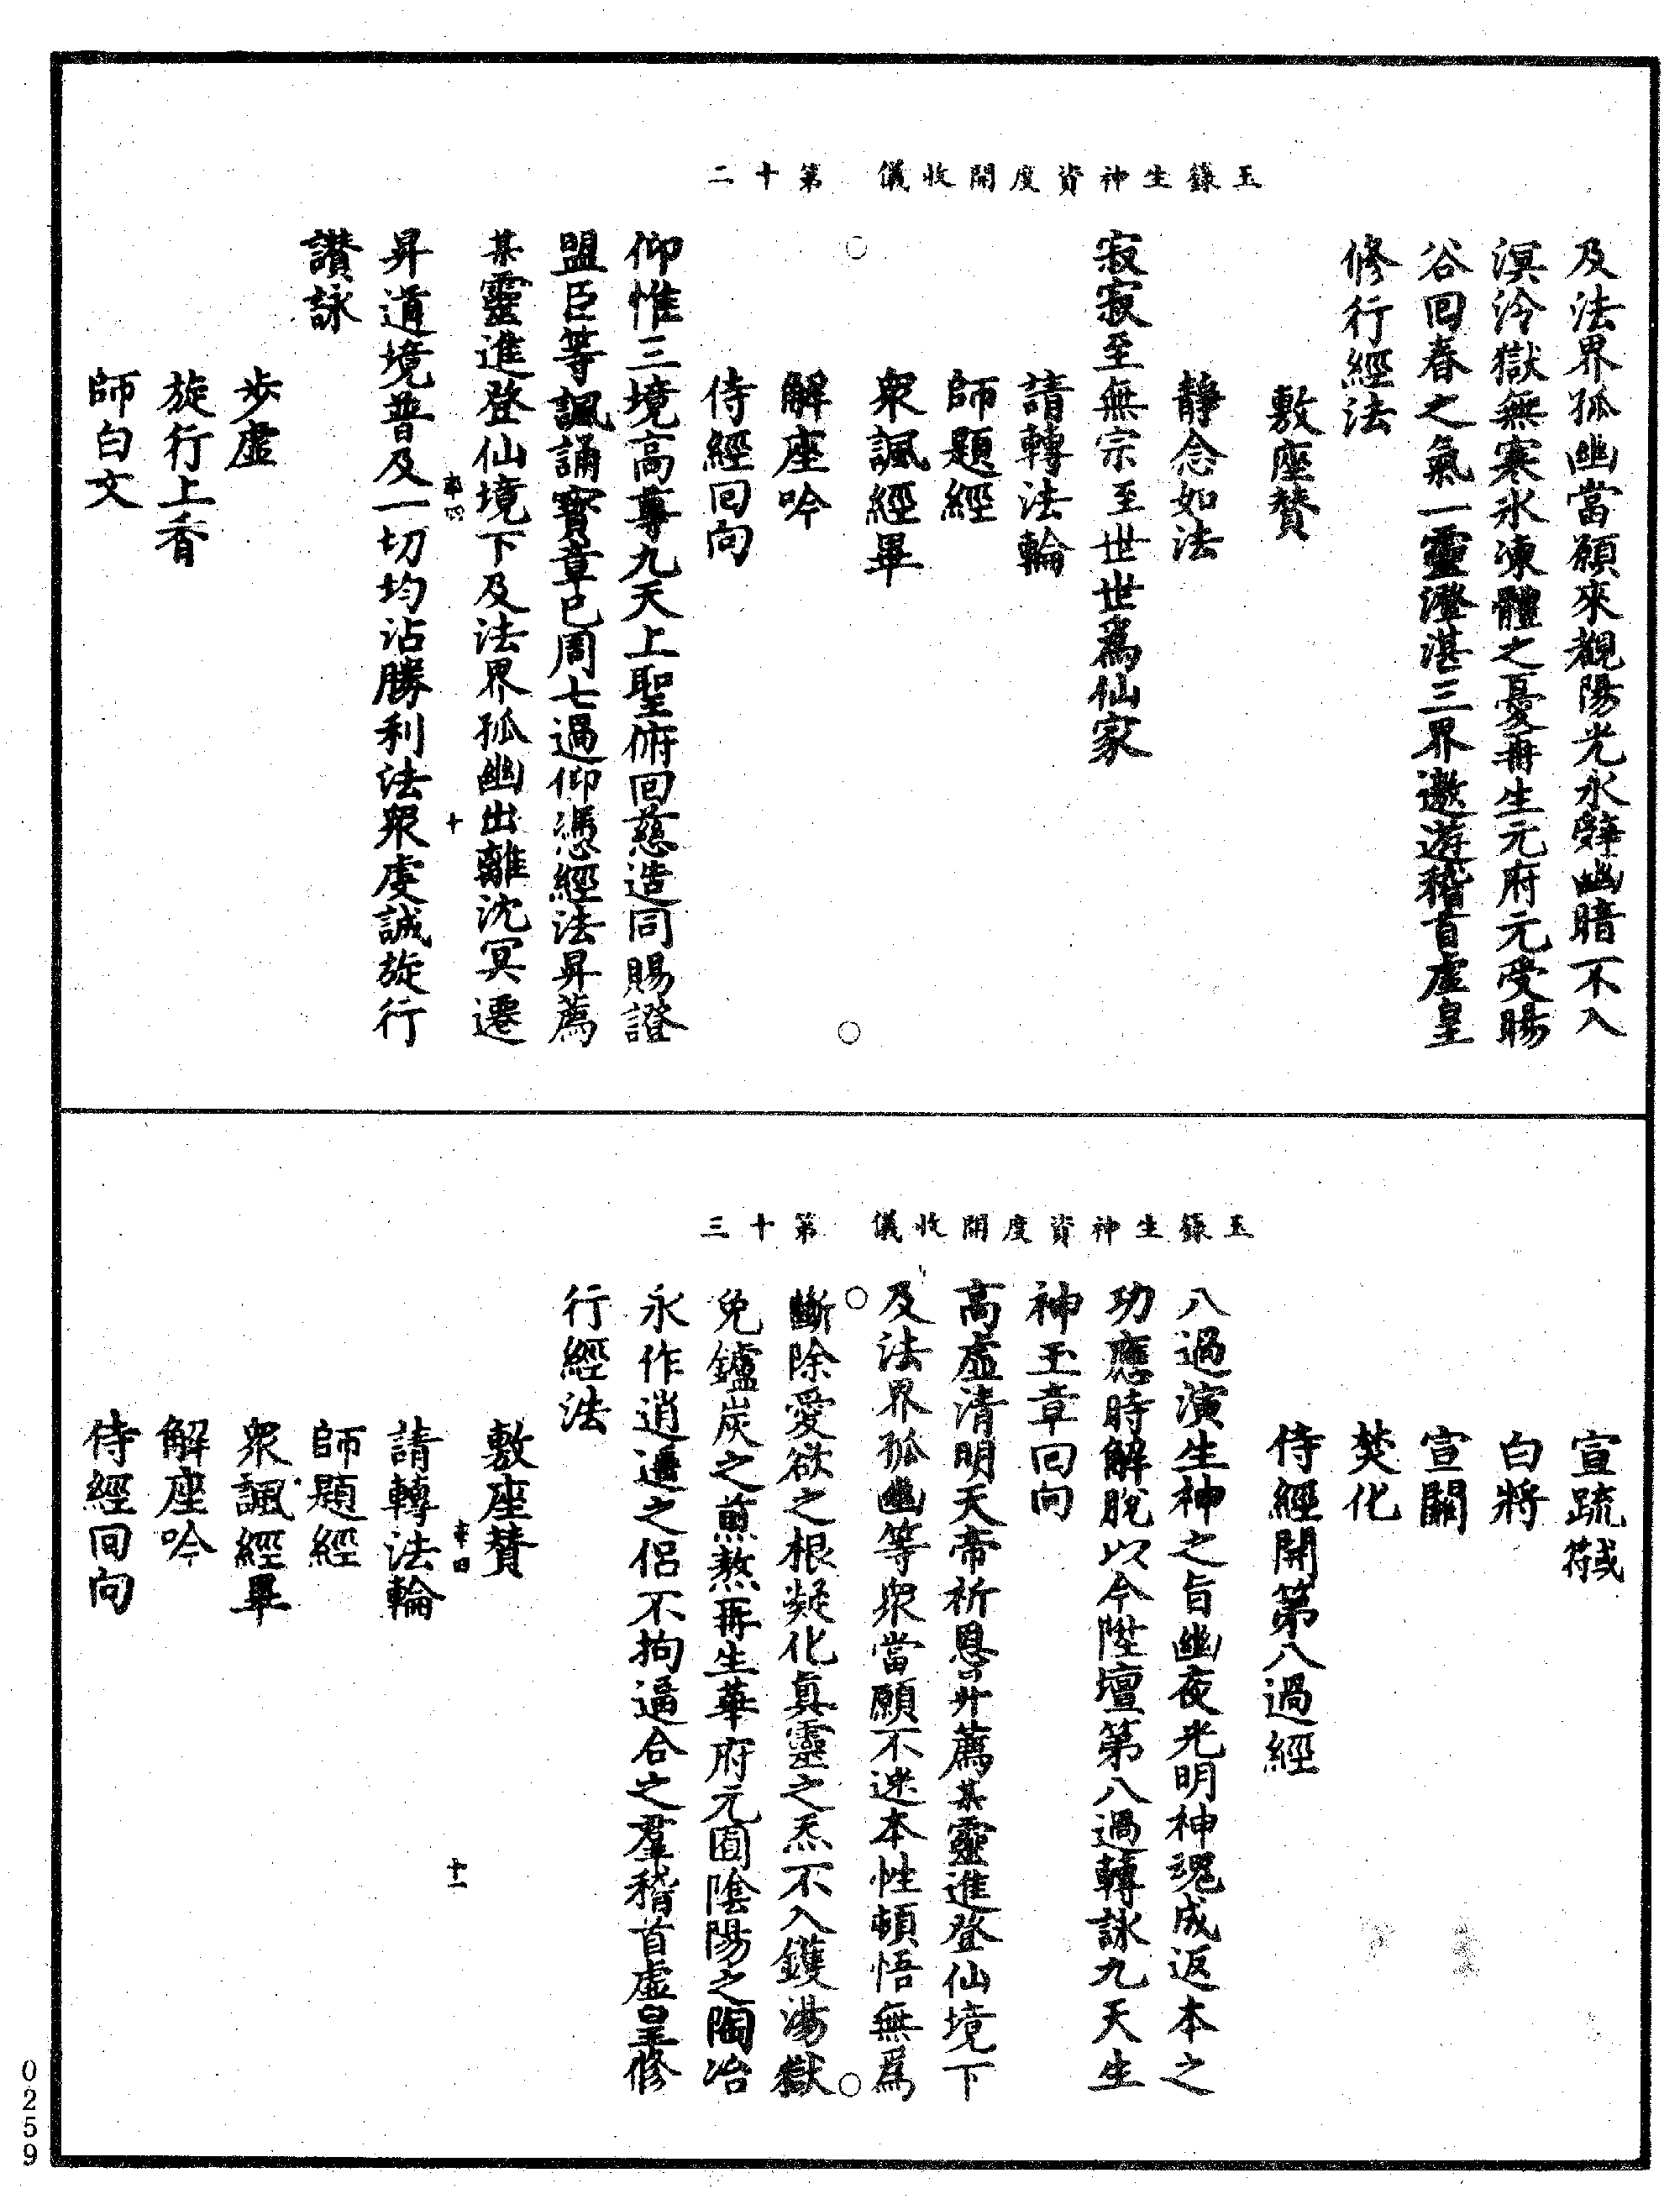 玉籙生神資度開收儀　第十二
及法界孤幽當願來觀陽光永辭幽暗不入
溟泠獄無寒氷凍體之憂再生元府元受暘
谷回春之氣一靈澄湛三界遨遊稽首虛皇
修行經法
敷座贊
靜念如法
寂寂至無宗至世世爲仙家
請轉法輪
師題經
衆諷經畢
解座吟
侍經回向
仰惟三境高尊九天上聖俯回慈造同賜證
盟臣等諷誦寳章已周七過仰憑經法昇薦
某靈進登仙境下及法界孤幽出離沈冥遷
十
昇道境普及一切均沾勝利法衆虔誠旋行
讃詠
步虛
旋行上香
師白文
玉籙生神資度開收儀　第十三
宣疏
白將
宣關
焚化
侍經開第八過經
八過演生神之旨幽夜光明神魂成返本之
功應時解脫以今陞壇第八過轉詠九天生
神玉章回向
高虛清明天帝祈恩升薦某靈進登仙境下
及法界孤幽等衆當願不迷本性頓悟無爲
斷除愛欲之根凝化眞靈之炁不入鑊湯獄
免鑪炭之煎熬再生華府元囿陰陽之陶冶
永作逍遙之侣不拘逼合之羣稽首虛皇修
行經法
敷座贊
十一
請轉法輪
師題經
衆諷經畢
解座吟
侍經回向
0259